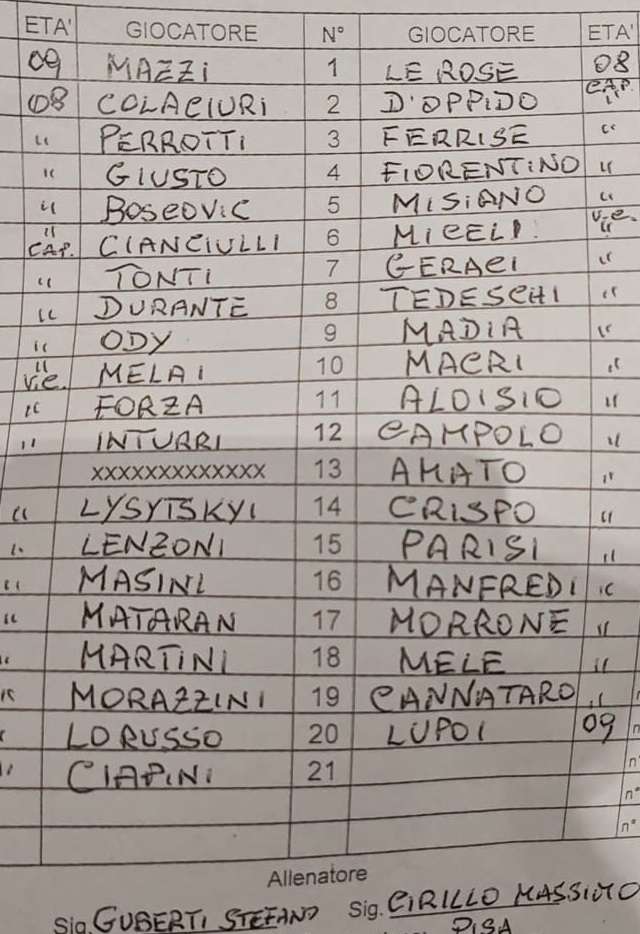 ETA' GIOCATORE N° GIOCATORE ETA'
09 MAZZI 1 LE ROSE 08
08 COLACIURI 2 D'OPPIDO CAP. "
" PERROTTI 3 FERRISE "
" GIUSTO 4 FIORENTINO "
" BOSCOVIC 5 MISIANO "
" CAP. CIANCIULLI 6 MICELI V.C. "
" TONTI 7 GERACI "
" DURANTE 8 TEDESCHI "
" ODY 9 MADIA "
" V.C. MELAI 10 MACRI "
" FORZA 11 ALOISIO "
" INTURRI 12 CAMPOLO "
XXXXXXXXXXXXX 13 AMATO "
" LYSYTSKYI 14 CRISPO "
" LENZONI 15 PARISI "
" MASINI 16 MANFREDI "
" MATARAN 17 MORRONE "
" MARTINI 18 MELE "
" MORAZZINI 19 CANNATARO "
" LORUSSO 20 LUPOI 09
" CIAPINI 21 n°
n°
n°
Allenatore
Sig. GUBERTI STEFANO Sig. CIRILLO MASSIMO
PISA